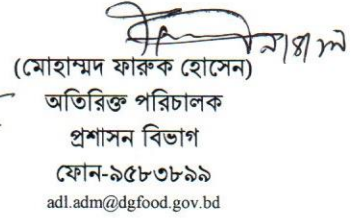 (মোহাম্মদ ফারুক হোসেন)
অতিরিক্ত পরিচালক
প্রশাসন বিভাগ
ফোন-৯৫৮৩৮৯৯
adl.adm@dgfood.gov.bd